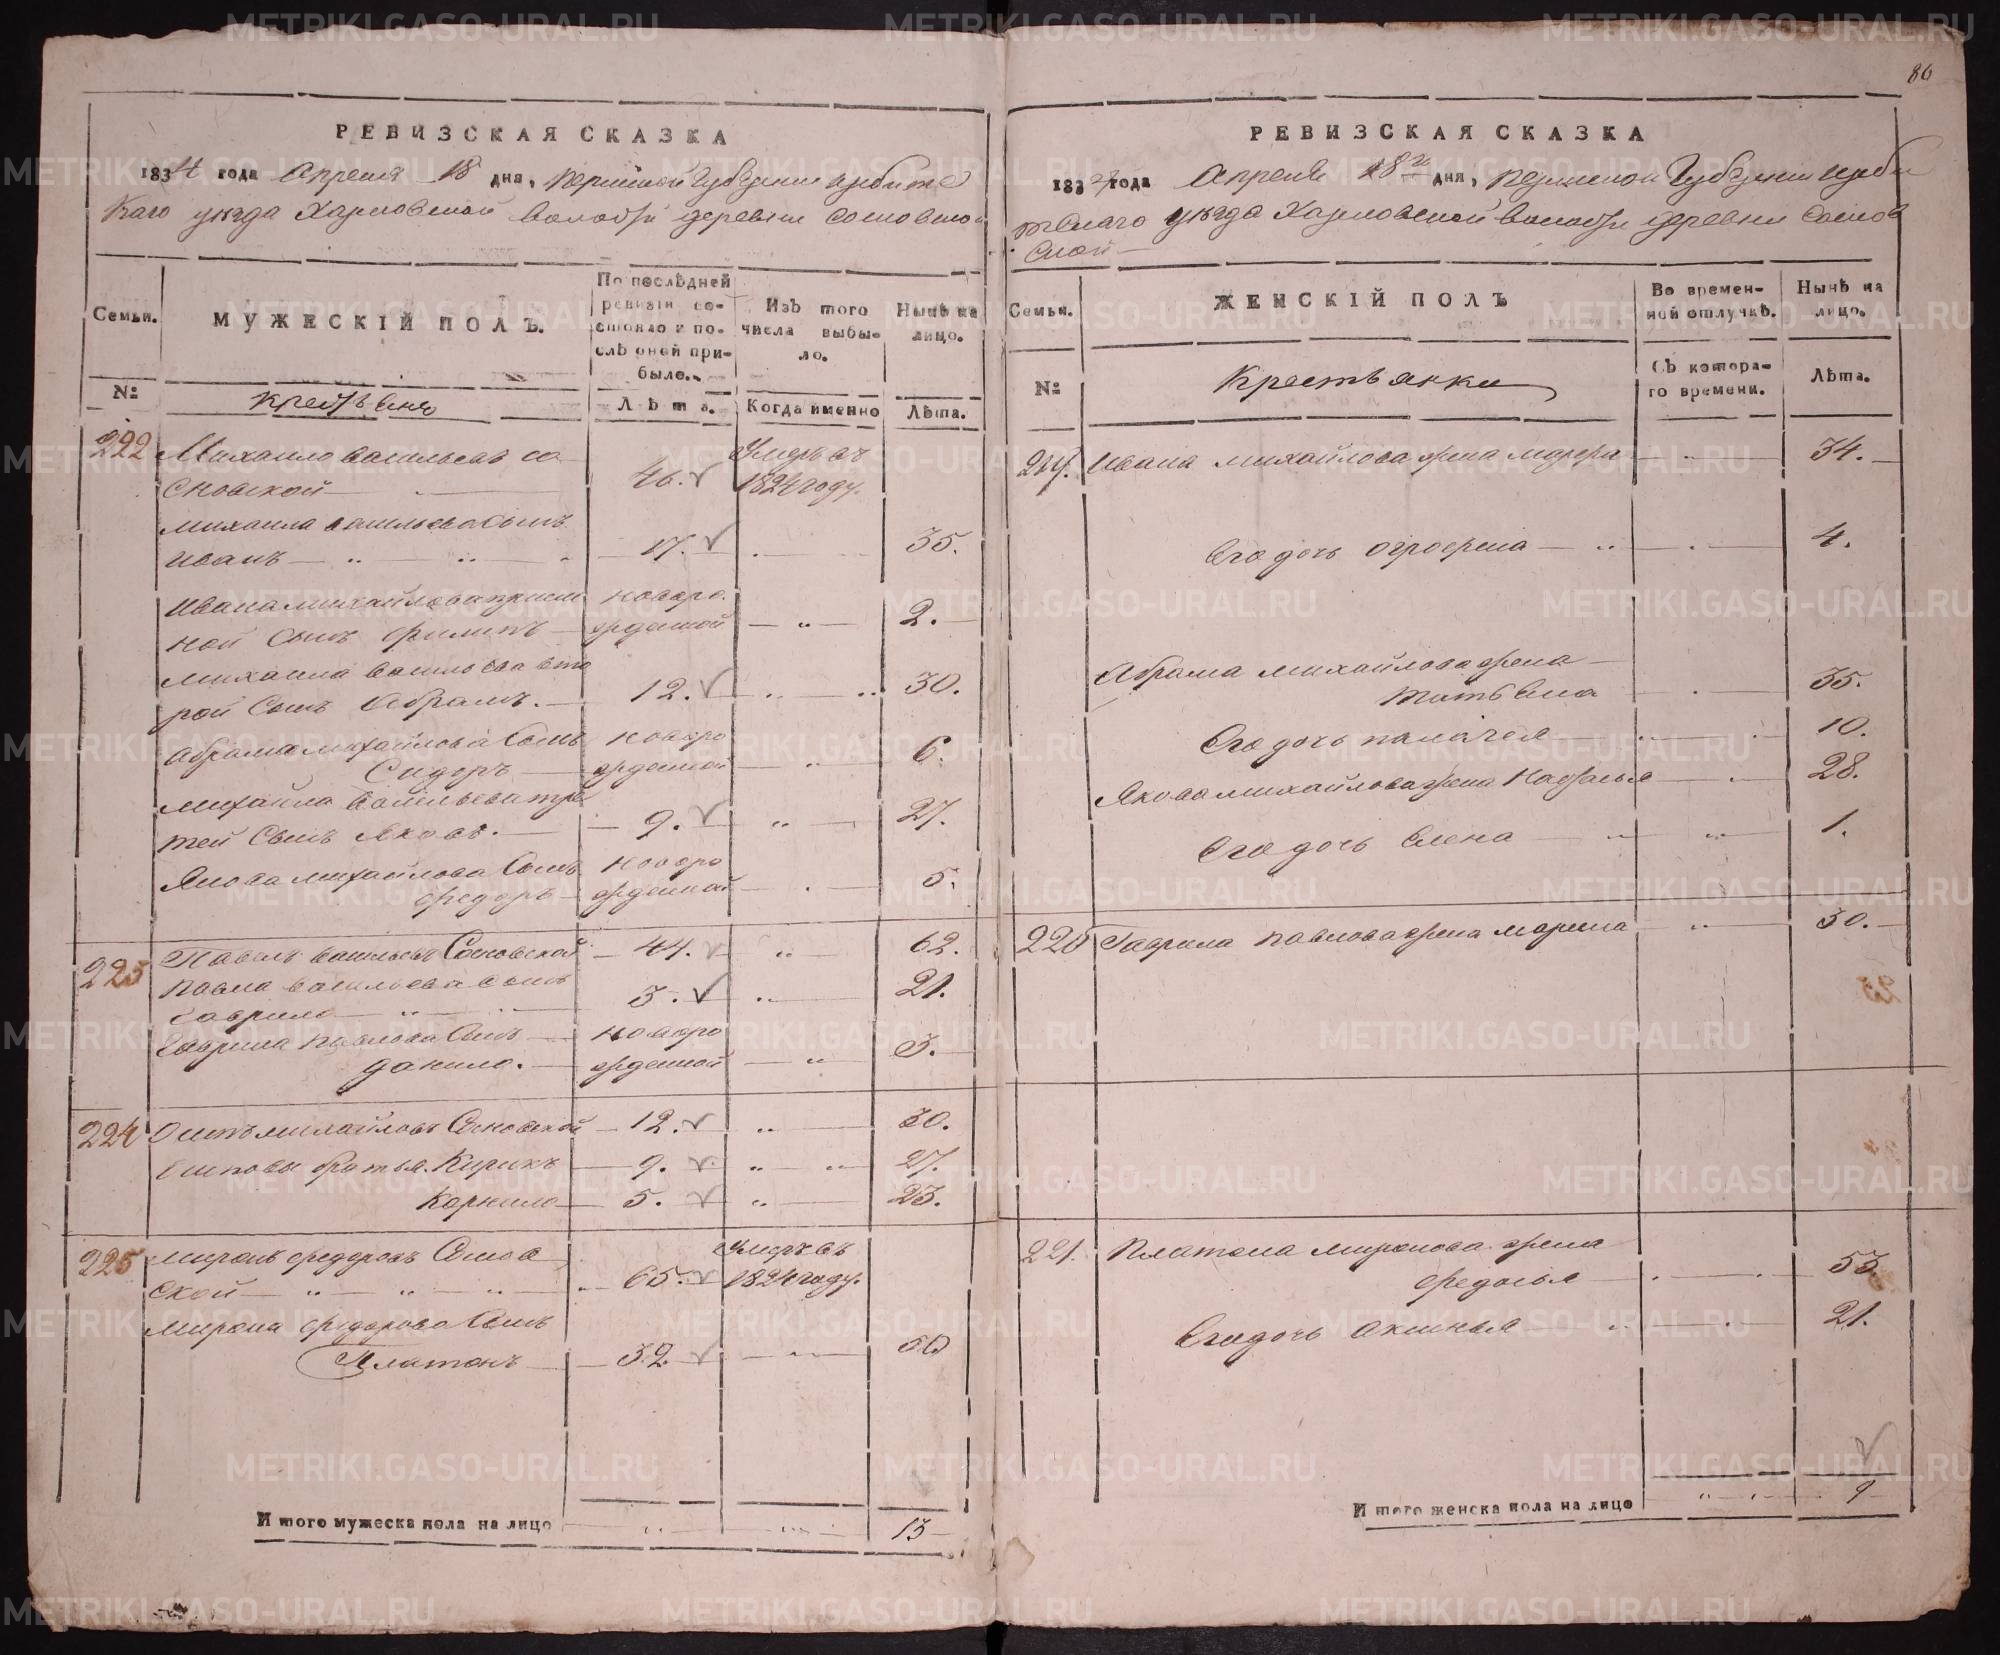 86
РЕВИЗСКАЯ СКАЗКА
1834 года Апреля 18 дня, Пермской Губернии Ирбитс
каго уезда Харловской волости деревни Сосновской
Семьи.
МУЖЕСКІЙ ПОЛЪ.
По послѣдней ревизіи состояло и послѣ оней прибыло.
Изъ того числа выбыло.
Нынѣ на лицо.
№
Крестьяня
Лѣта.
Когда именно
Лѣта.
222 Михаило васильевъ со
сновской 46. Умеръ въ 1824 году.
Михаила васильева сынъ
Иванъ 17. 35.
Ивана михайлова
ной сынъ филипъ новорожденной 2.
Михаила васильева вто
рой сынъ Абрамъ. 12. 30.
Абрама михайлова сынъ
Сидоръ новорожденной 6.
Михайла васильева тре
тей сынъ Яковъ. 9. 27.
Якова михайлова сынъ
федоръ новорожденной 5.
223 Павелъ васильевъ Сосновской 44. 62.
Павла васильева сынъ
Гаврило 3. 21.
Гаврила павлова сынъ
данило. новорожденной 3.
224 Осипъ михайловъ Сосновской 12. 30.
Осиповы братья. Кирикъ 9. 27.
Корнило 5. 23.
225 Миронъ федоровъ Соснов
ской 65. Умеръ въ 1824 году.
Мирона федорова сынъ
Платонъ 32. 50
Итого мужеска пола на лицо 13
РЕВИЗСКАЯ СКАЗКА
1834 года Апреля 18го дня, Пермской Губерніи Ирби
тскаго уезда Харловской волости деревни Соснов
ской
Семьи.
ЖЕНСКІЙ ПОЛЪ
Во временной отлучкѣ.
Нынѣ на лицо.
№
Крестьянки
Съ котораго времени.
Лѣта.
219. Ивана михайлова жена 34.
Его дочь огрофена 4.
Абрама михайлова жена
татьяна 35.
Его дочь палагея 10.
Якова михайлова жена Наталья 28.
Его дочь Елена 1.
220 Гаврила павлова жена марина 30.
221. Платона миронова жена
федосья 53.
Его дочь аксинья 21.
Итого женска пола на лицо 9
METRIKI.GASO-URAL.RU